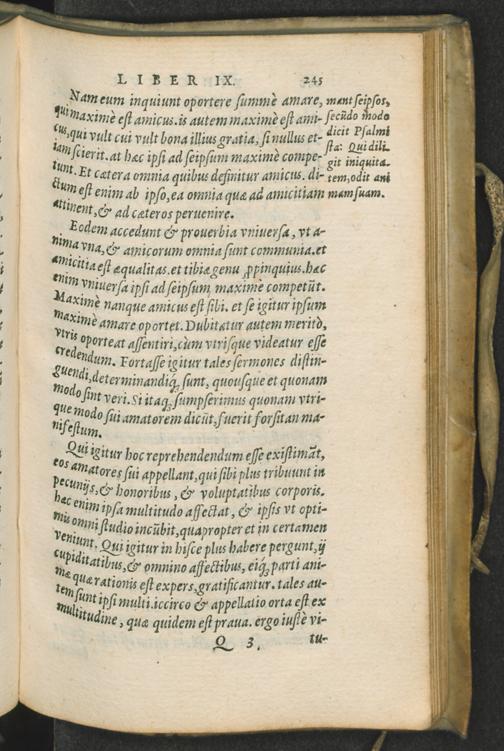 LIBER IX. 245
Nam eum inquiunt oportere summè amare,
qui maximè est amicus. is autem maximè est ami-
cus, qui vult cui vult bona illius gratia, si nullus et-
iam scierit. at hæc ipsi ad seipsum maximè compe-
tunt. Et cætera omnia quibus definitur amicus. di-
ctum est enim ab ipso, ea omnia quæ ad amicitiam
attinent, & ad cæteros peruenire.
Eodem accedunt & prouerbia vniuersa, vt a-
nima vna, & amicorum omnia sunt communia. et
amicitia est æqualitas. et tibiæ genu ꝓpinquius. hæc
enim vniuersa ipsi ad seipsum maximè competũt.
Maximè nanque amicus est sibi. et se igitur ipsum
maximè amare oportet. Dubitatur autem meritò,
vtris oporteat assentiri, cùm vtrisque videatur esse
credendum. Fortasse igitur tales sermones distin-
guendi, determinandiq́; sunt, quousque et quonam
modo sint veri. Si itaq; sumpserimus quonam vtri-
que modo sui amatorem dicũt, fuerit forsitan ma-
nifestum.
Qui igitur hoc reprehendendum esse existimãt,
eos amatores sui appellant, qui sibi plus tribuunt in
pecunijs, & honoribus, & voluptatibus corporis.
hæc enim ipsa multitudo affectat, & ipsis vt opti-
mis omni studio incũbit, quapropter et in certamen
veniunt. Qui igitur in hisce plus habere pergunt, ij
cupiditatibus, & omnino affectibus, eiq́; parti ani-
mæ quæ rationis est expers, gratificantur. tales au-
tem sunt ipsi multi. iccirco & appellatio orta est ex
multitudine, quæ quidem est praua. ergo iustè vi-
Q 3. tu-
mant seipsos,
secũdo modo
dicit Psalmi
sta: Qui dili
git iniquita-
tem, odit ani
mam suam.